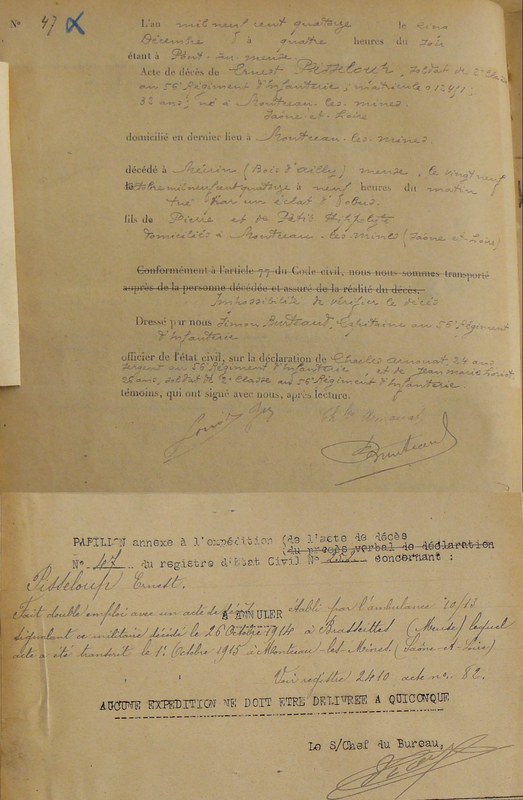 N° 47
L'an mil neuf cent quatorze le cinq
Décembre à quatre heures du soir
étant à Pont-sur-meuse
Acte de décès de Ernest Pisseloup, soldat de 2e classe
au 56e Régiment d'Infanterie, matricule
32 ans, né à Montceau-les-mines
Saône-et-Loire
domicilié en dernier lieu à Montceau-les-mines
décédé à (Bois d'ailly) meuse, le vingt neuf
octobre mil neuf cent quatorze à neuf heures du matin
tué par un éclat d'obus
fils de Pierre et de Petit Hippolyte
domiciliés à Montceau-les-mines (Saône-et-Loire)
Conformément à l'article 77 du Code civil, nous nous sommes transporté
auprès de la personne décédée et assuré de la réalité du décès.
Impossibilité de vérifier le décès
Dressé par nous Simon Capitaine au 56e Régiment
d'Infanterie
officier de l'état civil, sur la déclaration de Charles 24 ans
sergent au 56e Régiment d'Infanterie, et de Jean marie
ans, soldat de 2e classe au 56e Régiment d'Infanterie
témoins, qui ont signé avec nous, après lecture.
PAPILLON annexe à l'expédition (de l'acte de décès
(du procès verbal de déclaration
N° 47 du registre d'Etat Civil N° concernant :
Pisseloup Ernest.
Fait double emploi avec un acte de décès établi par l'ambulance 10/13
A ANNULER
ce militaire décédé le 26 Octobre 1914 à (Meuse) lequel
acte a été transcrit le 1er Octobre 1915 à Montceau-les-Mines (Saône-et-Loire)
Voir registre 2410 acte n° 82.
AUCUNE EXPEDITION NE DOIT ETRE DELIVREE A QUICONQUE
Le S/Chef du Bureau,